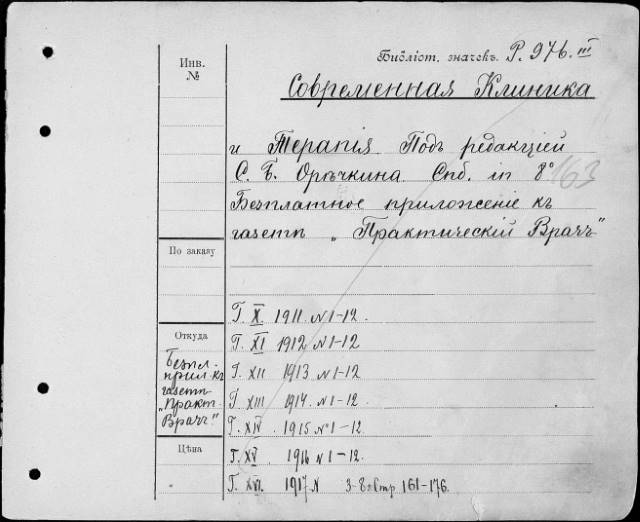 Инв. №
Библіот. значекъ. Р. 976. III
Современная Клиника
и Терапія. Подъ редакціей
С. Б. Орѣчкина. Спб. in 8°
163
Безплатное приложеніе къ
газетѣ „Практическій Врачъ"
По заказу
Г. X. 1911. N 1-12.
Откуда
Г. XI 1912 N 1-12
Безпл.
прил. къ
газетѣ
„Практ.
Врачъ."
Г. XII 1913 N 1-12
Г. XIII 1914. N 1-12.
Г. XIV. 1915 № 1-12.
Цѣна
Г. XV. 1916 N 1-12.
Г. XVI. 1917 N 3-8 стр 161-176.